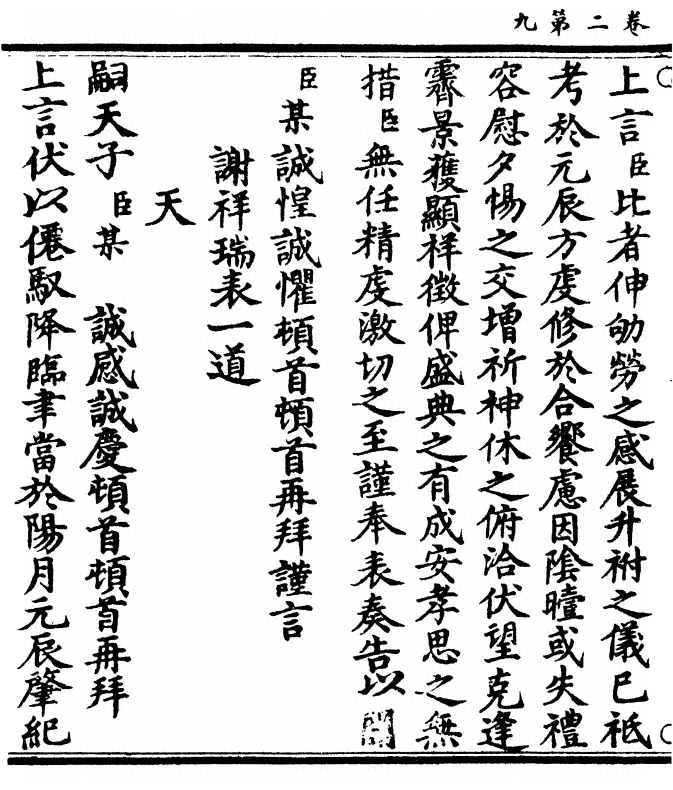 卷二第九
上言臣比者伸劬勞之感展升祔之儀已祗
考於元辰方虔修於合饗慮因陰曀或失禮
容慰夕惕之交增祈神休之俯洽伏望克逢
霽景獲顯祥徵俾盛典之有成安孝思之無
措臣無任精虔激切之至謹奉表奏告以聞
臣某誠惶誠懼頓首頓首再拜謹言
謝祥瑞表一道
天
嗣天子臣某 誠感誠慶頓首頓首再拜
上言伏以僊馭降臨聿當於陽月元辰肇紀